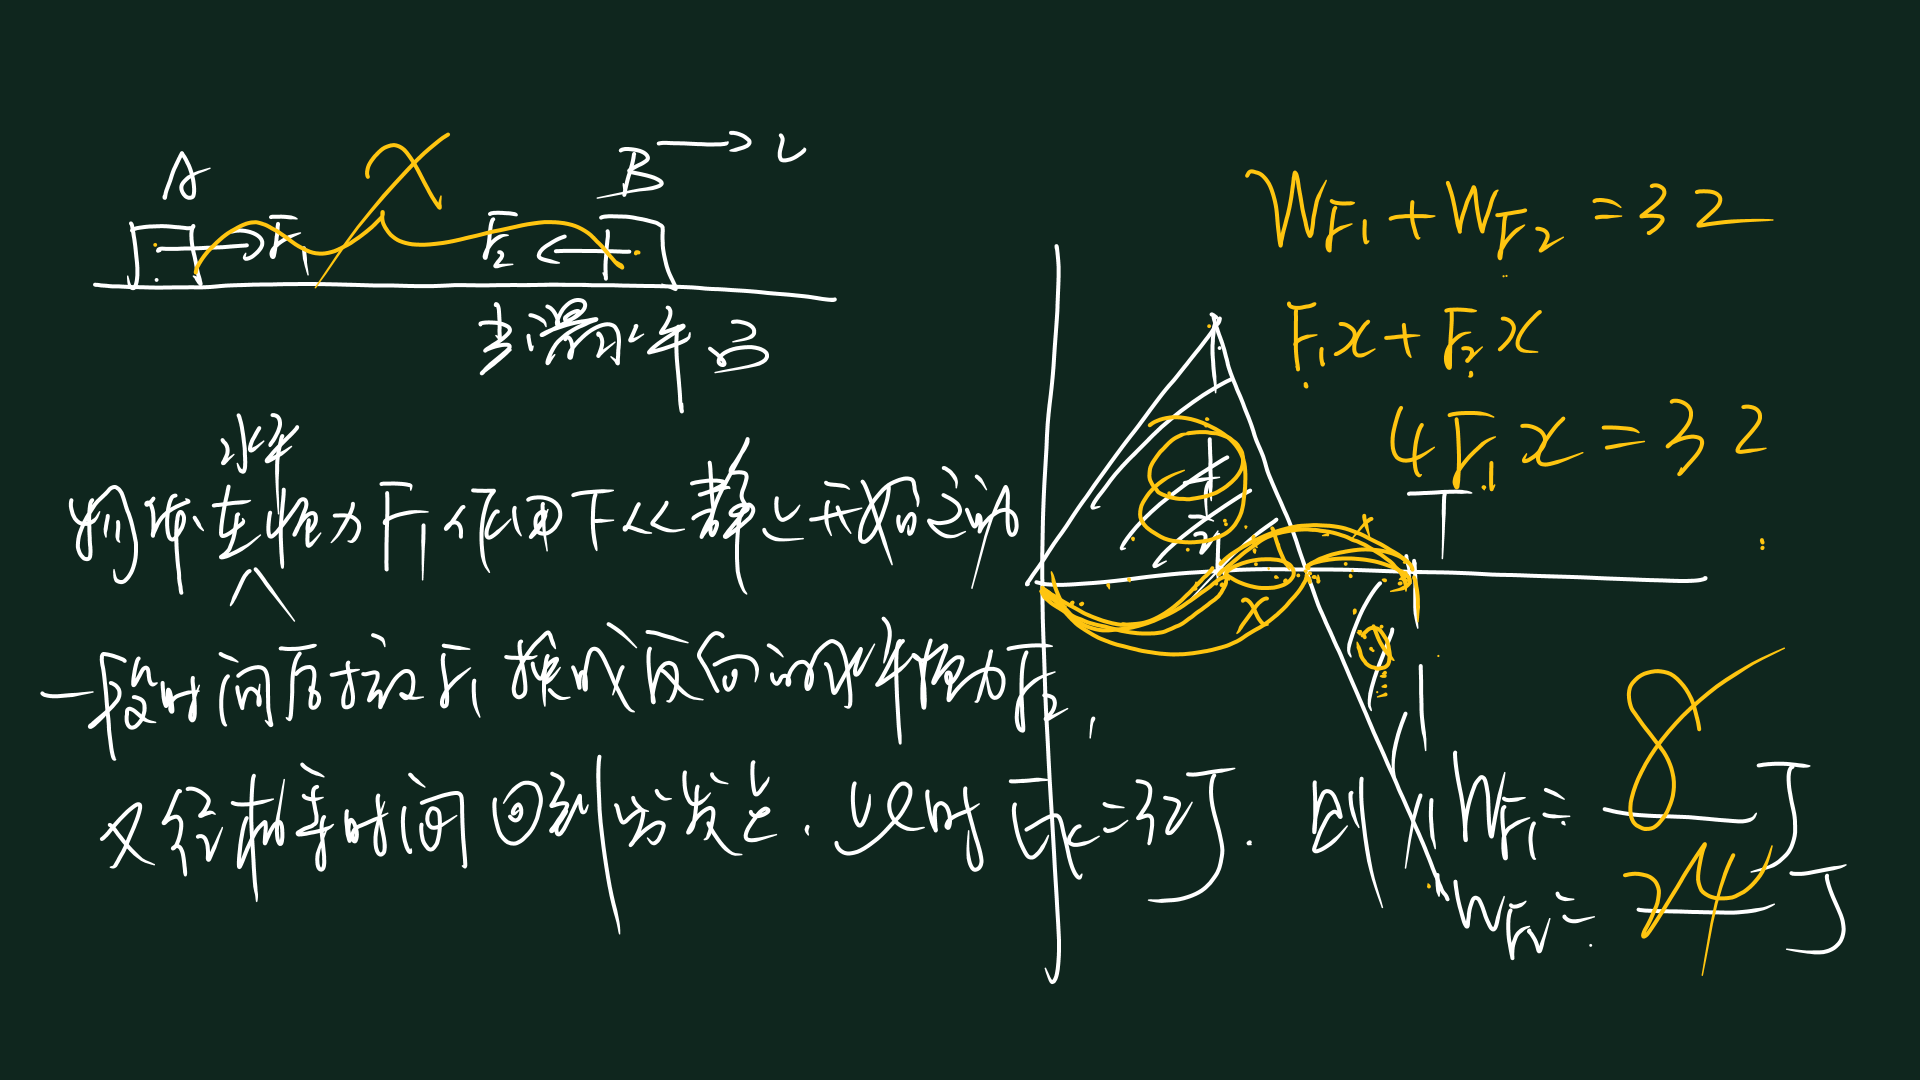 A
B
v
F₁
F₂
光滑水平面
水平
物体在恒力F₁作用下从静止开始运动
一段时间后撤去F₁换成反向的水平恒力F₂,
又经相等时间回到出发点.此时Eₖ=32J. 则 W_F₁=8J
W_F₂=24J
W_F₁+W_F₂=32
F₁x+F₂x
4F₁x=32
T
x
x
x